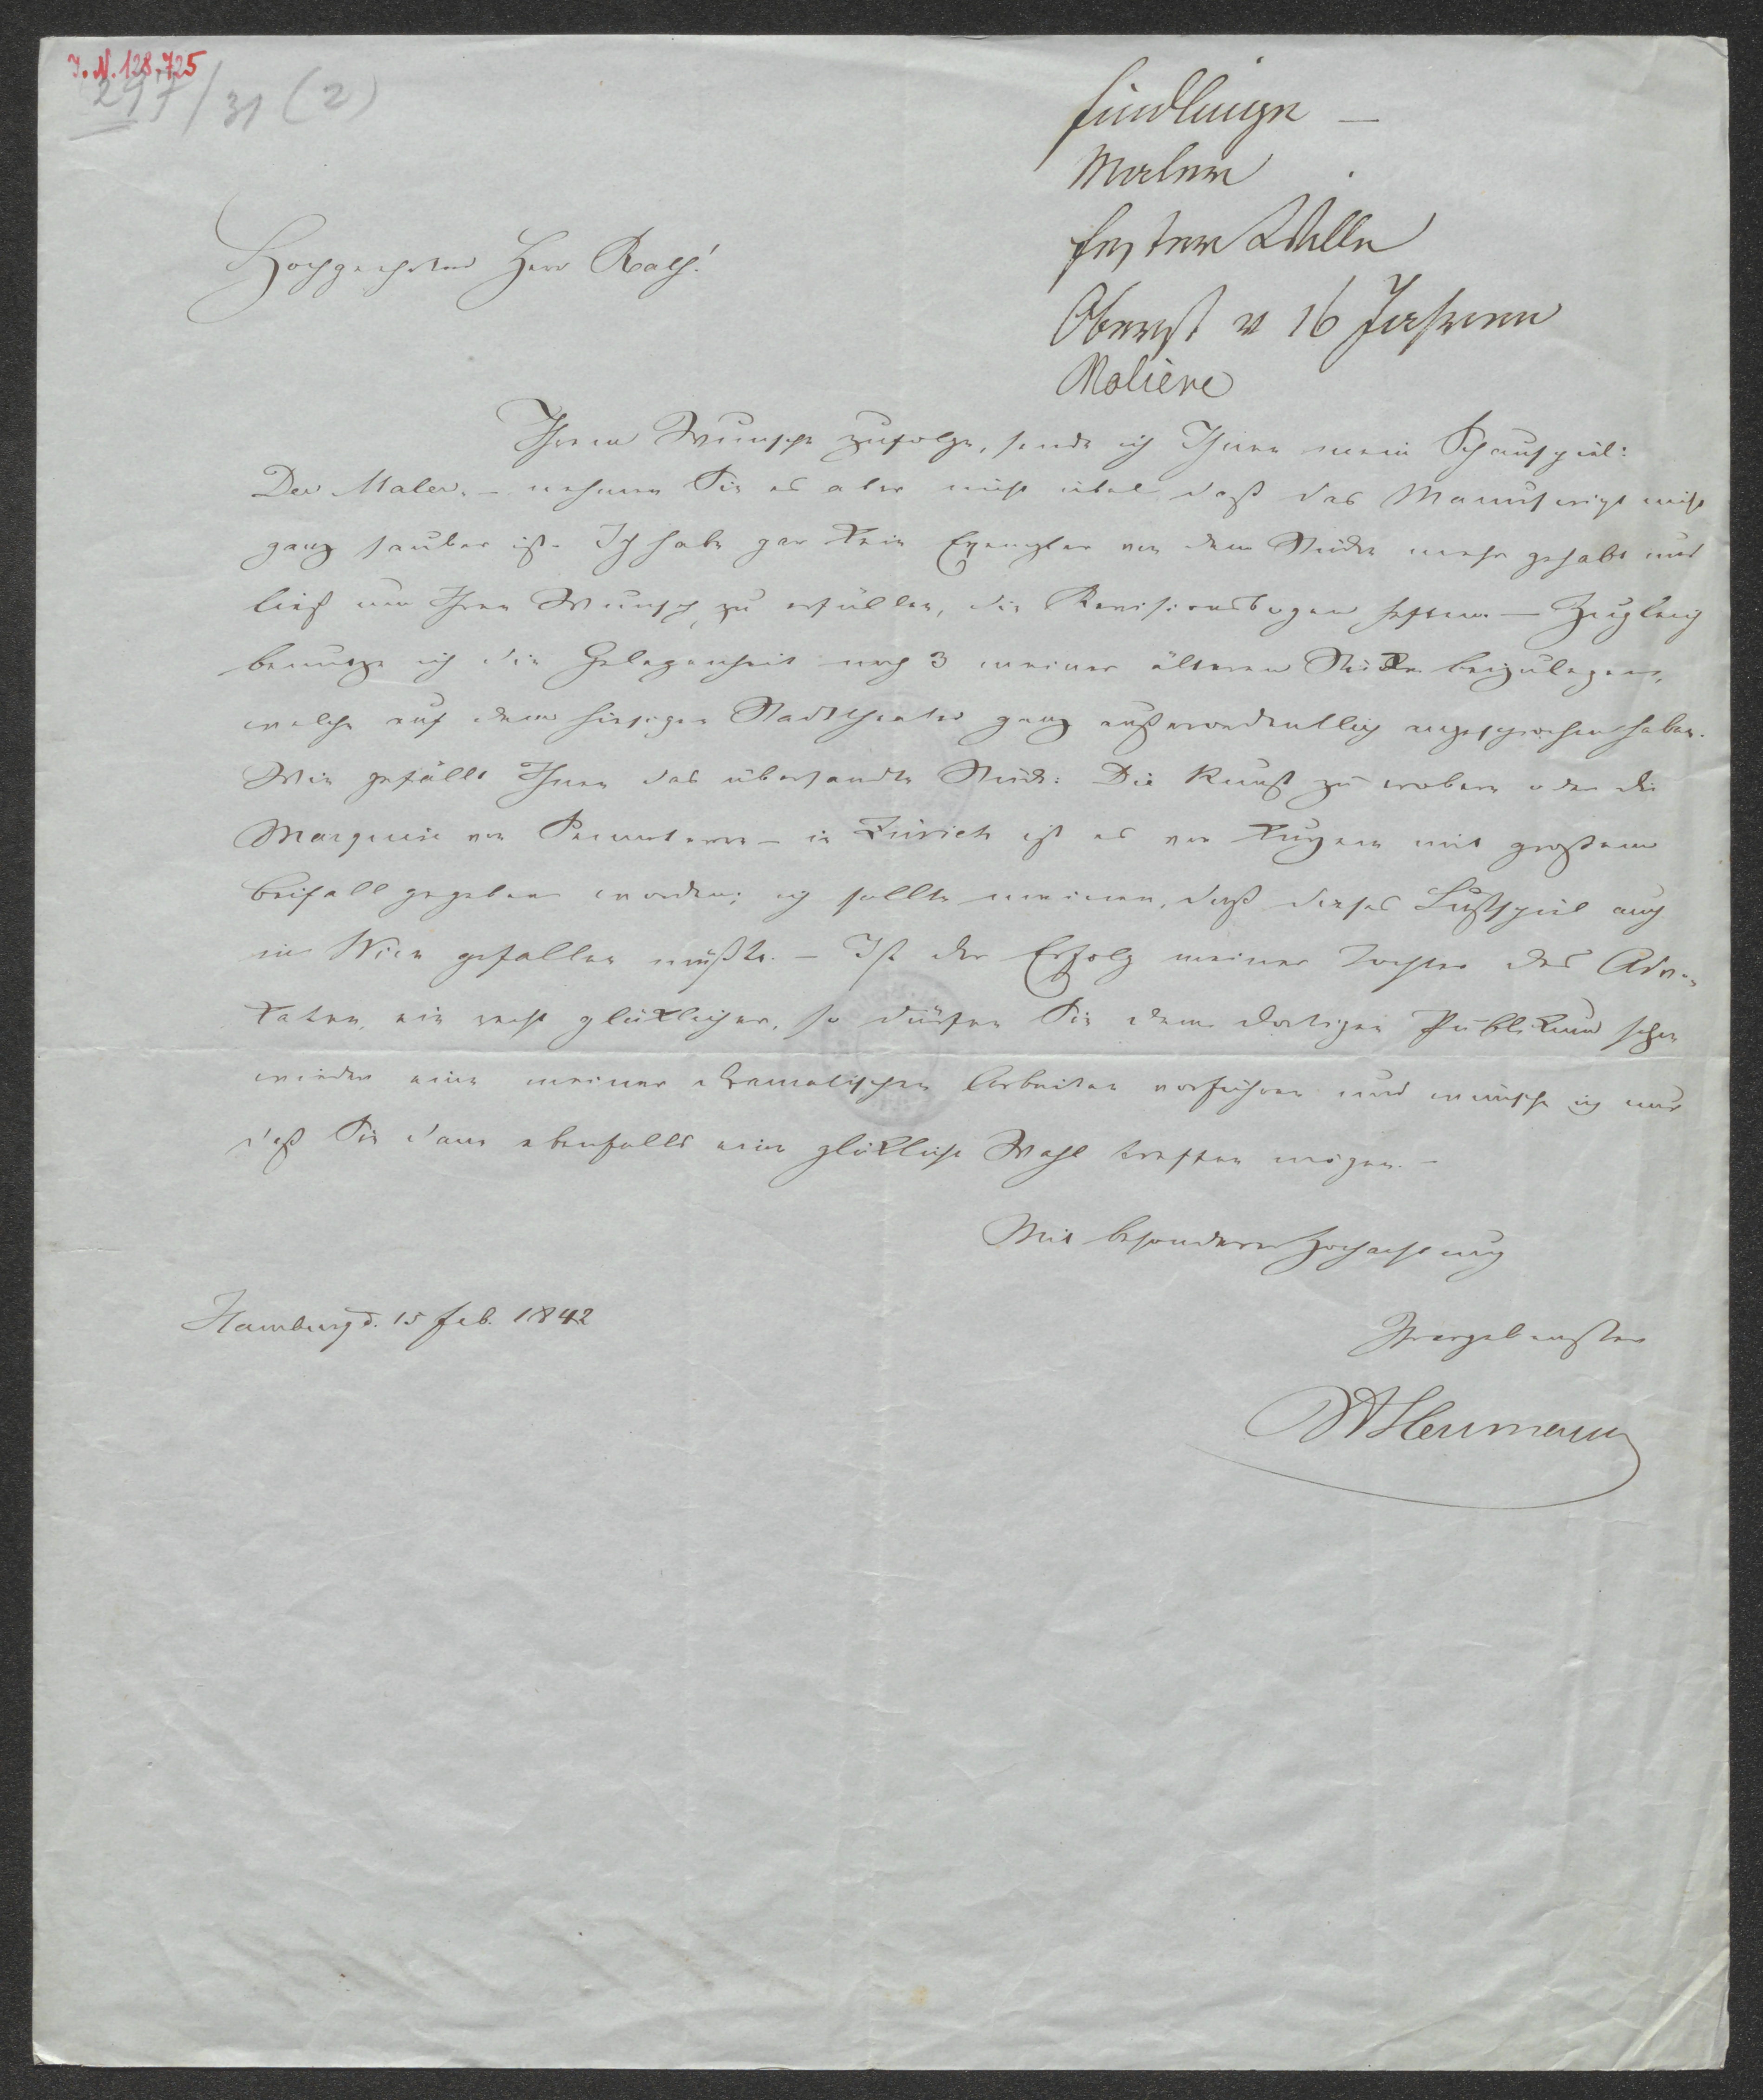 I. N. 128.725
297/31 (2)
Findlinge —
Maler
fester Wille
Oberst v 16 Jahren
Molière
Hochgeehrter Herr Rath!
Ihrem Wunsche zufolge, sende ich Ihnen mein Schauspiel:
Der Maler. — nehmen Sie es aber nicht übel daß das Manuscript nicht
ganz sauber ist. Ich habe gar kein Exemplar von dem Stücke mehr gehabt und
ließ um Ihren Wunsch zu erfüllen, die Revisionsbogen heften — Zugleich
benutze ich die Gelegenheit noch 3 meiner älteren Stücke beizulegen,
welche auf dem hiesigen Stadttheater ganz außerordentlich angesprochen haben.
Wie gefällt Ihnen das übersandte Stück: Die Kunst zu erobern oder die
Marquise von — in Zürich ist es vor Kurzem mit großem
Beifall gegeben worden; ich sollte meinen, daß dieses Lustspiel auch
in Wien gefallen müßte. — Ist der Erfolg meiner Tochter des Advo-
katen, ein recht glücklicher, so dürfen Sie dem dortigen Publikum schon
wieder eine meiner dramatischen Arbeiten vorführen und wünsche ich nur
daß Sie dann ebenfalls eine glückliche Wahl treffen mögen. —
Mit besonderer Hochachtung
Hamburg d. 15 Feb. 1842
Ihr ergebenster